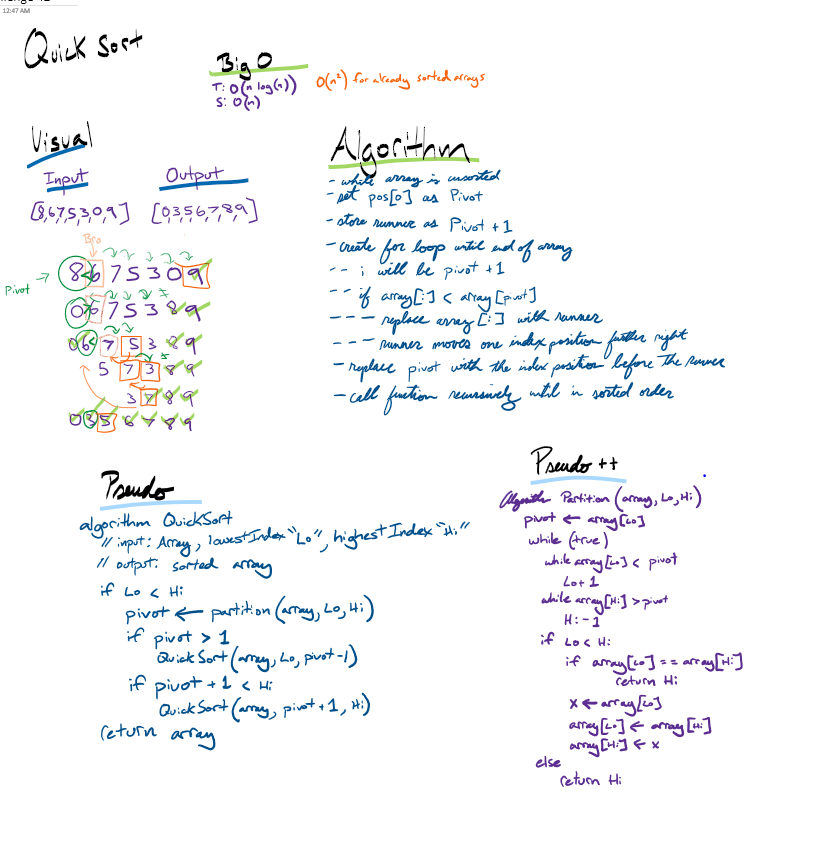 12:47 AM
Quick Sort
Big O
T: O(n log(n))
O(n²) for already sorted arrays
S: O(n)
Visual
Input
Output
[8,6,7,5,3,0,9]
[0,3,5,6,7,8,9]
Bro
Pivot
8 < 6 7 5 3 0 9
0 6 7 5 3 8 9
0 6 < 7 5 3 8 9
5 7 3 8 9
3 7 8 9
0 3 5 6 7 8 9
Algorithm
- while array is unsorted
- set pos[0] as Pivot
- store runner as Pivot + 1
- create for loop until end of array
- - i will be pivot + 1
- - if array[i] < array[pivot]
- - - replace array[i] with runner
- - - runner moves one index position further right
- replace pivot with the index position before the runner
- call function recursively until in sorted order
Pseudo
algorithm QuickSort
// input: Array, lowest Index "Lo", highest Index "Hi"
// output: sorted array
if Lo < Hi
pivot ← partition (array, Lo, Hi)
if pivot > 1
QuickSort (array, Lo, pivot-1)
if pivot + 1 < Hi
QuickSort (array, pivot+1, Hi)
return array
Pseudo ++
Algorithm Partition (array, Lo, Hi)
pivot ← array[Lo]
while (true)
while array[Lo] < pivot
Lo + 1
while array[Hi] > pivot
Hi - 1
if Lo < Hi
if array[Lo] == array[Hi]
return Hi
x ← array[Lo]
array[Lo] ← array[Hi]
array[Hi] ← x
else
return Hi